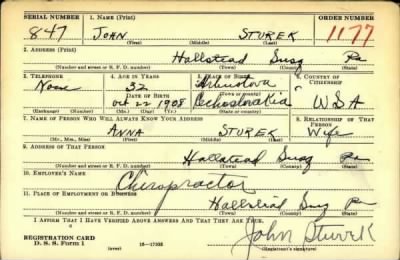 SERIAL NUMBER 1. NAME (Print) ORDER NUMBER
847 JOHN STUREK 1177
(First) (Middle) (Last)
2. ADDRESS (Print)
Hallstead Susq Pa
(Number and street or R. F. D. number) (Town) (County) (State)
3. TELEPHONE 4. AGE IN YEARS 5. PLACE OF BIRTH 6. COUNTRY OF CITIZENSHIP
None 32
DATE OF BIRTH (Town or county)
Oct 22 1908 Czechoslovakia USA
(Exchange) (Number) (Mo.) (Day) (Yr.) (State or country)
7. NAME OF PERSON WHO WILL ALWAYS KNOW YOUR ADDRESS 8. RELATIONSHIP OF THAT PERSON
ANNA STUREK Wife
(Mr., Mrs., Miss) (First) (Middle) (Last)
9. ADDRESS OF THAT PERSON
Hallstead Susq Pa
(Number and street or R. F. D. number) (Town) (County) (State)
10. EMPLOYER'S NAME
Chiropractor
11. PLACE OF EMPLOYMENT OR BUSINESS
Hallstead Susq Pa
(Number and street or R. F. D. number) (Town) (County) (State)
I AFFIRM THAT I HAVE VERIFIED ABOVE ANSWERS AND THAT THEY ARE TRUE.
REGISTRATION CARD
D. S. S. Form 1 (over) 16—17105 John Sturek
(Registrant's signature)